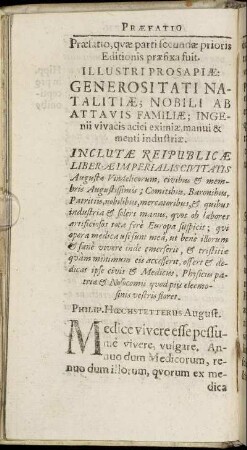 PRÆFATIO.
Præfatio, quæ parti secundæ prioris
Editionis præfixa fuit.
ILLUSTRI PROSAPIÆ:
GENEROSITATI NA-
TALITIÆ; NOBILI AB
ATTAVIS FAMILIÆ; INGE-
nii vivacis aciei eximiæ, manui &
menti industriæ.
INCLUTÆ REIPUBLICÆ
LIBERÆ IMPERIALIS CIVITATIS
Augustæ Vindelicorum, civibus & mem-
bris Augustissimis; Comitibus, Baronibus,
Patritiis, nobilibus, mercatoribus, & quibus
industria & solers manus, quos ob labores
artificiosos tota ferè Europa suspicit; qui
opera medica usi sunt meâ, ut benè illorum
& sanè vivere indè emerserit, & tristitiæ
quàm minimum eis accesserit, offert & de-
dicat ipse civis & Medicus, Physicus pa-
triæ & Nosocomii quod piis eleemo-
sinis vestris floret.
PHILIP. HŒCHSTETTERUS August.
Medicè vivere esse pessu-
mè vivere, vulgare. An-
nuo dum Medicorum, re-
nuo dum illorum, quorum ex me-
dica